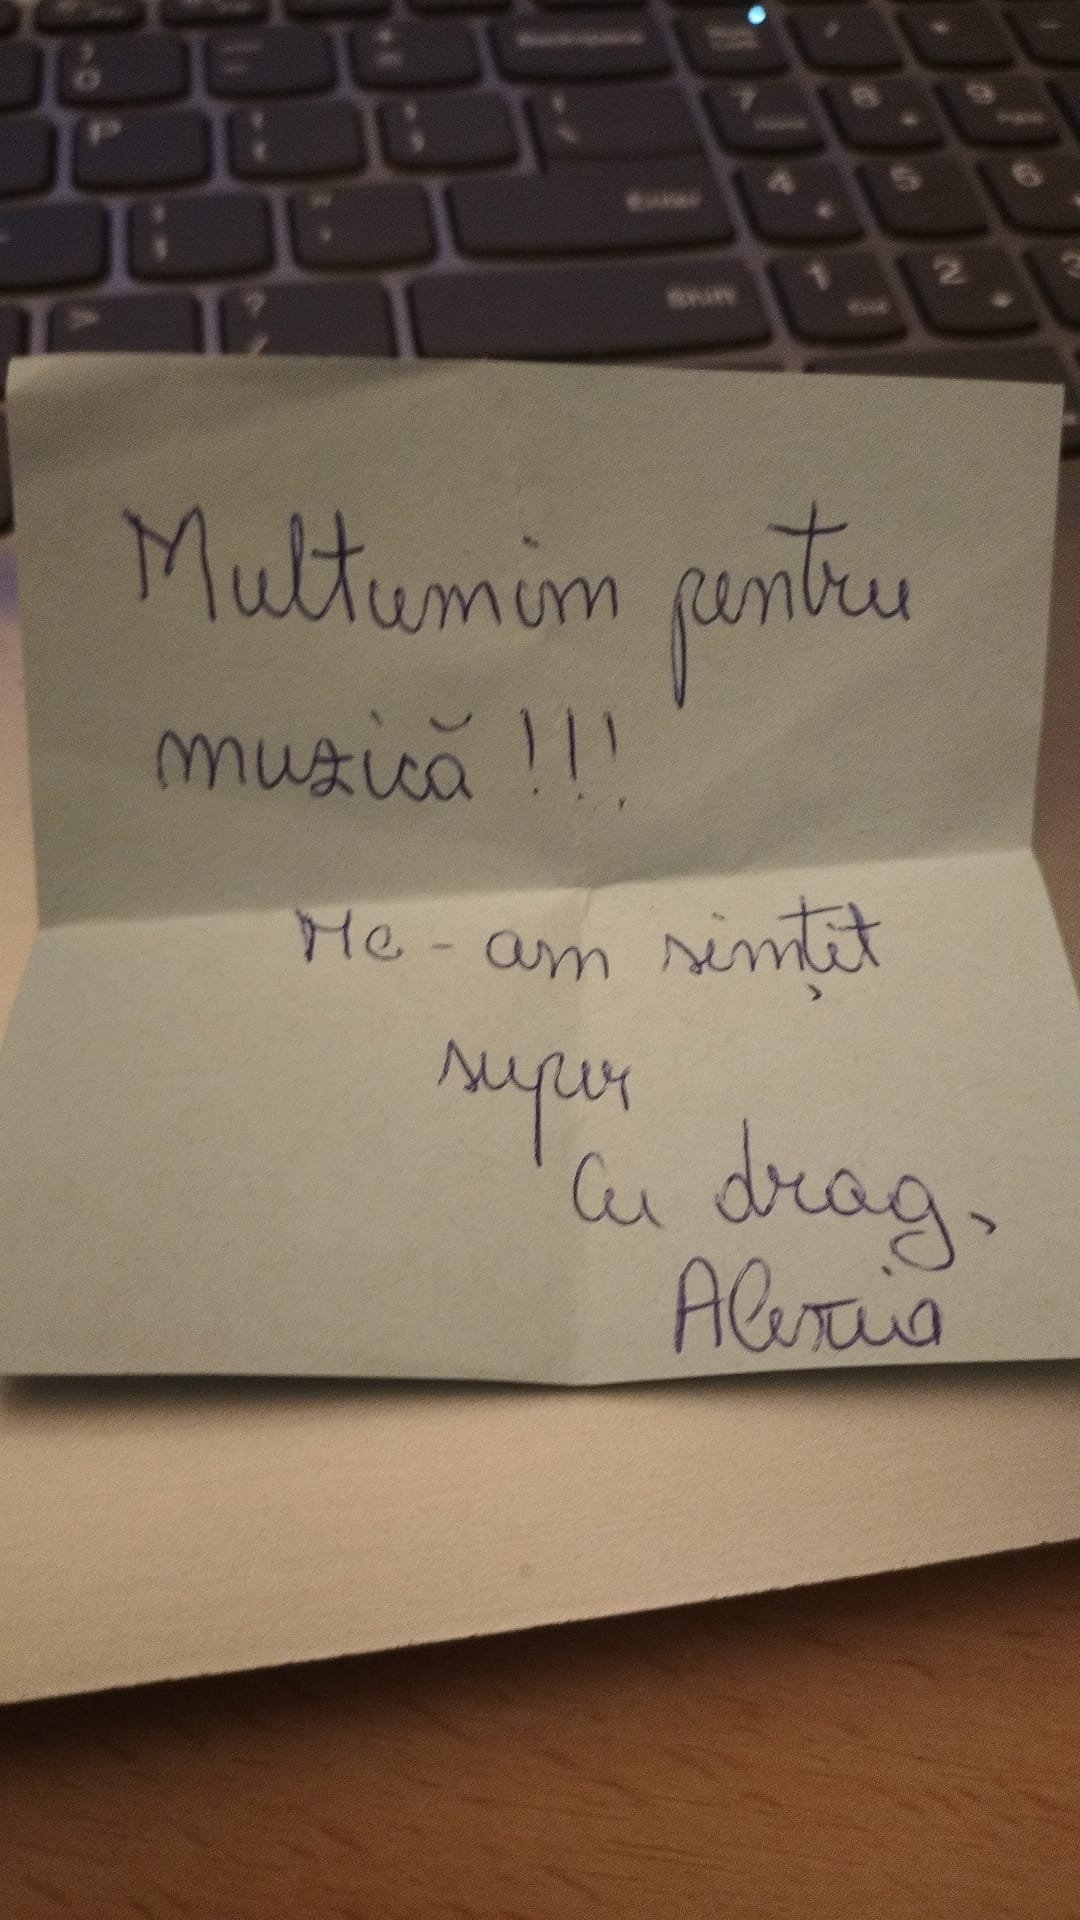 Multumim pentru
muzică !!!
Me-am simțit
super
Cu drag,
Alexia
P
Enter
Shift
7
8
9
4
5
6
1
2
3